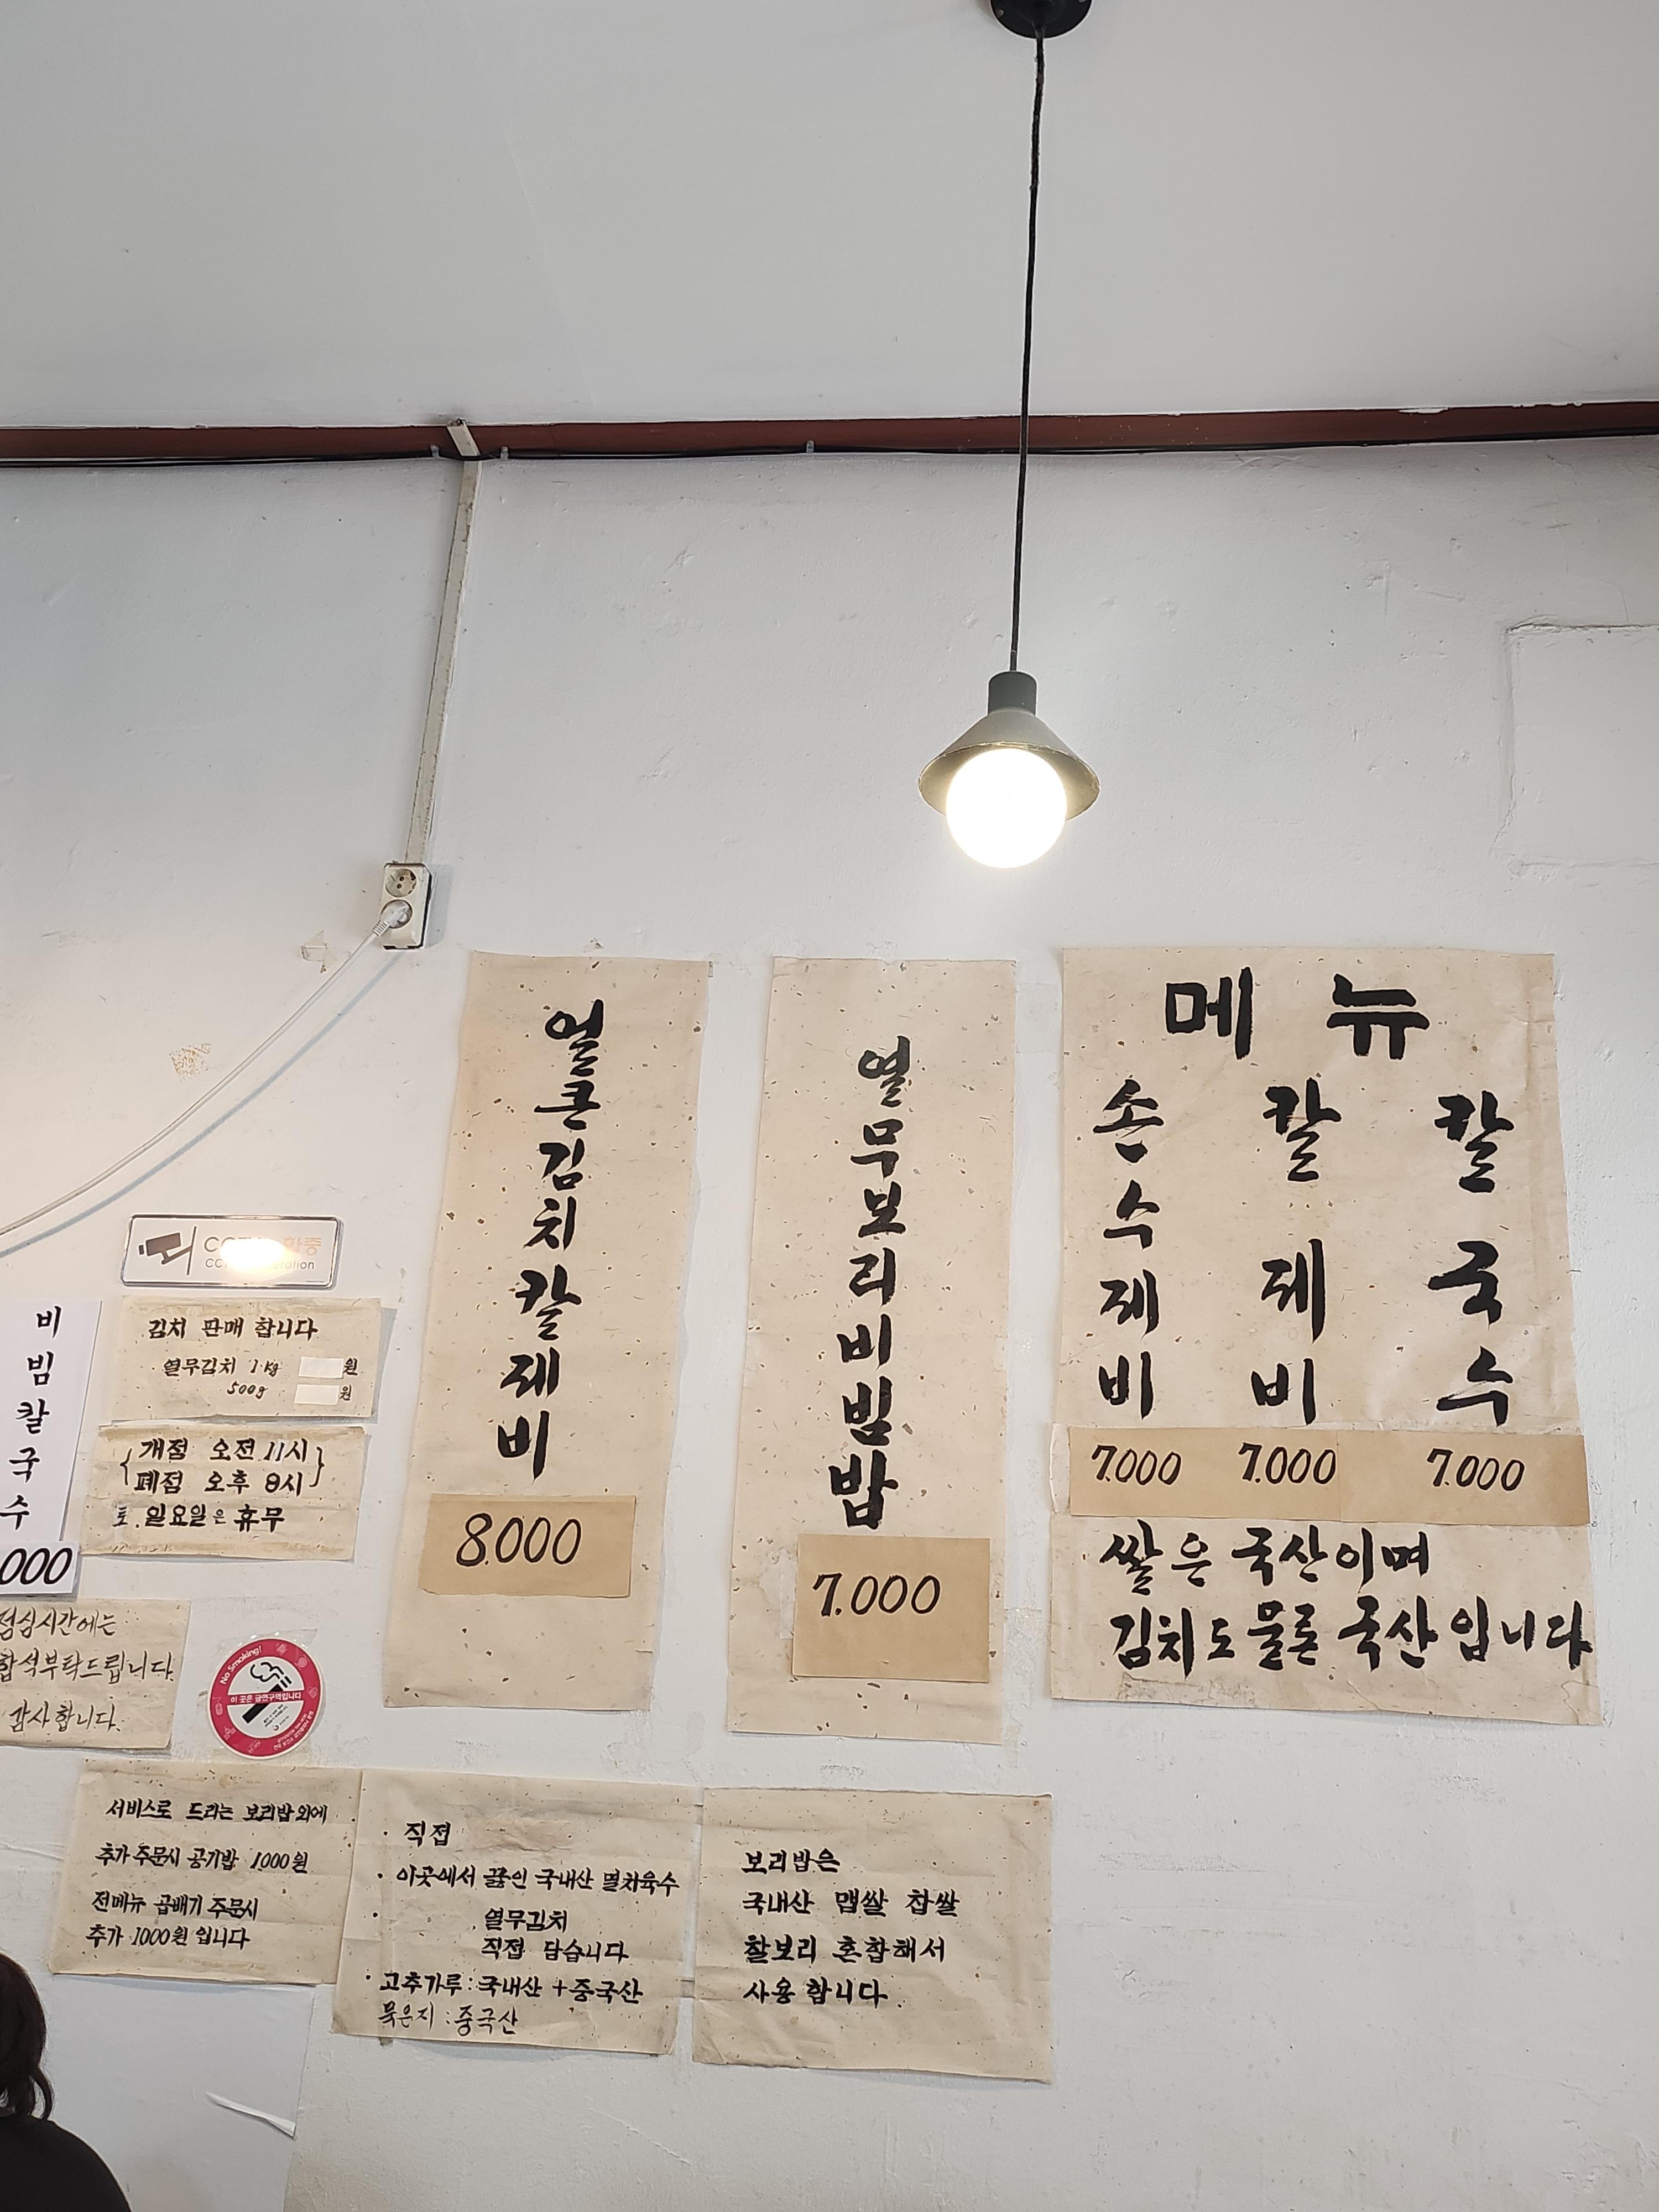 메뉴
칼국수
7.000
칼제비
7.000
손수제비
7.000
쌀은 국산이며
김치도 물론 국산 입니다
열무보리비빔밥
7.000
얼큰김치칼제비
8.000
김치 판매 합니다
열무김치 1kg 원
500g 원
개점 오전 11시
폐점 오후 8시
토.일요일은 휴무
비빔칼국수
000
점심시간에는
합석부탁드립니다
감사합니다.
No Smoking!
이 곳은 금연구역입니다
서비스로 드리는 보리밥외에
추가주문시 공기밥 1000원
전메뉴 곱배기 주문시
추가 1000원 입니다
직접
· 이곳에서 끓인 국내산 멸치육수
· 열무김치
직접 담습니다
· 고추가루: 국내산 + 중국산
묵은지 : 중국산
보리밥은
국내산 맵쌀 찹쌀
찰보리 혼합해서
사용 합니다.